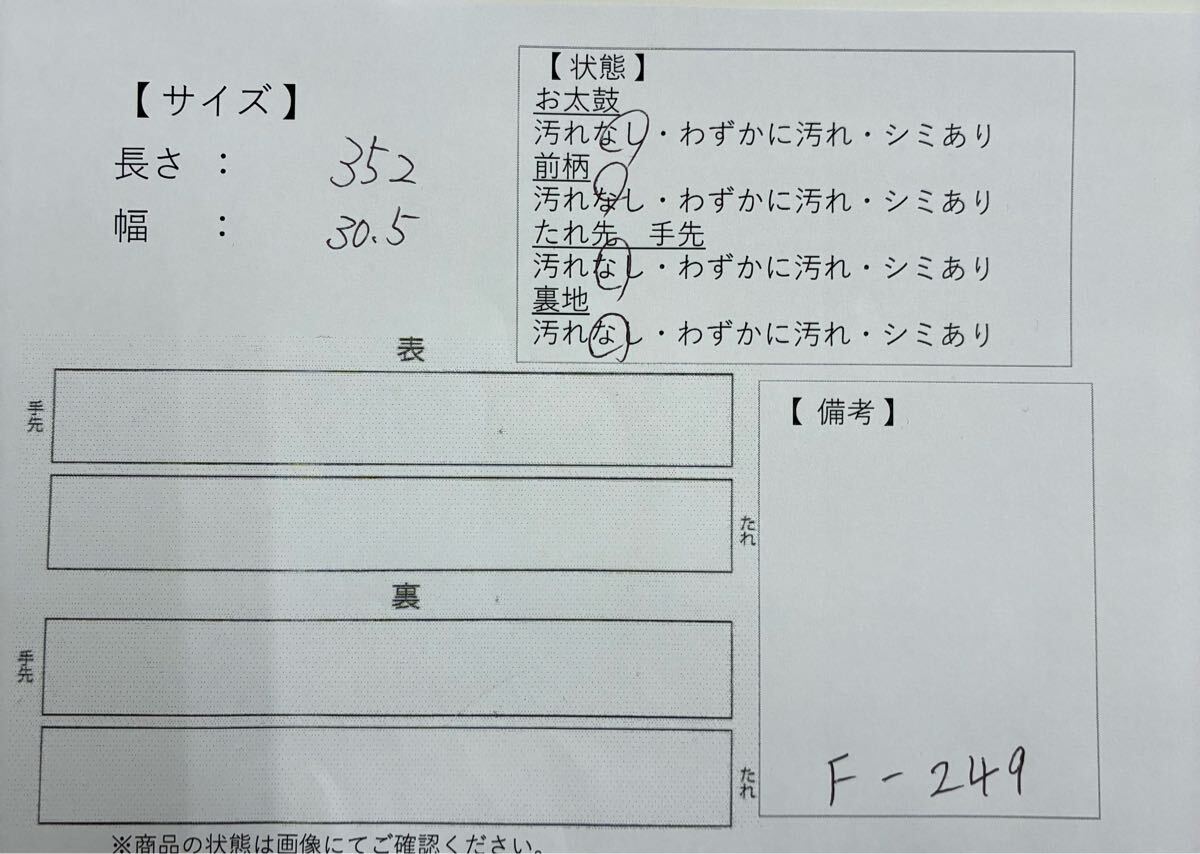 【 サイズ 】
長さ ： 352
幅 ： 30.5
【 状態 】
お太鼓
汚れなし・わずかに汚れ・シミあり
前柄
汚れなし・わずかに汚れ・シミあり
たれ先　手先
汚れなし・わずかに汚れ・シミあり
裏地
汚れなし・わずかに汚れ・シミあり
表
手先
たれ
裏
手先
たれ
【 備考 】
F - 249
※商品の状態は画像にてご確認ください。